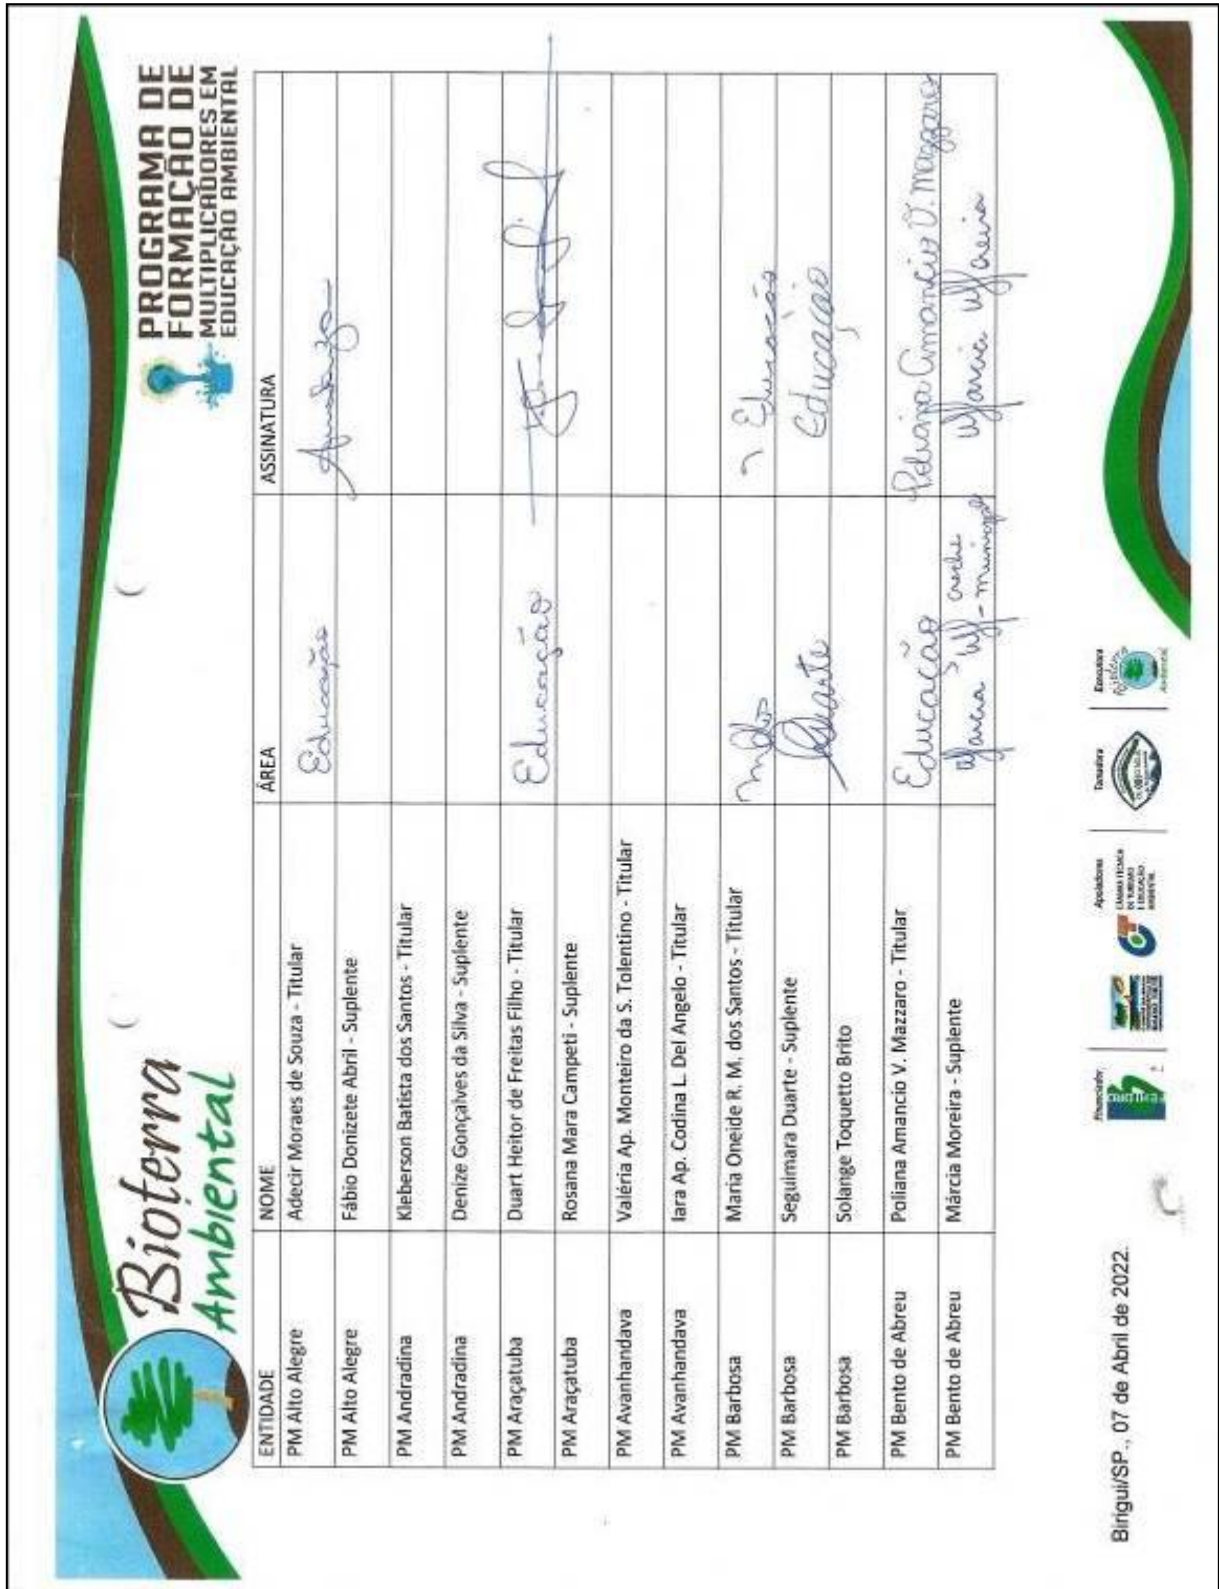 Bioterra
Ambiental
PROGRAMA DE
FORMAÇÃO DE
MULTIPLICADORES EM
EDUCAÇÃO AMBIENTAL
ENTIDADE NOME ÁREA ASSINATURA
PM Alto Alegre Adecir Moraes de Souza - Titular Educação
PM Alto Alegre Fábio Donizete Abril - Suplente
PM Andradina Kleberson Batista dos Santos - Titular
PM Andradina Denize Gonçalves da Silva - Suplente
PM Araçatuba Duart Heitor de Freitas Filho - Titular Educação
PM Araçatuba Rosana Mara Campeti - Suplente
PM Avanhandava Valéria Ap. Monteiro da S. Tolentino - Titular
PM Avanhandava Iara Ap. Codina L. Del Angelo - Titular
PM Barbosa Maria Oneide R. M. dos Santos - Titular Educação
PM Barbosa Seguimara Duarte - Suplente Duarte Educação
PM Barbosa Solange Toquetto Brito
PM Bento de Abreu Poliana Amancio V. Mazzaro - Titular Educação Poliana Amancio V. Mazzaro
PM Bento de Abreu Márcia Moreira - Suplente creche municipal
Birigui/SP., 07 de Abril de 2022.
Financiador
Apoiadores
CÂMARA TÉCNICA
DE TURISMO
E EDUCAÇÃO
AMBIENTAL
Tomadora
Executora